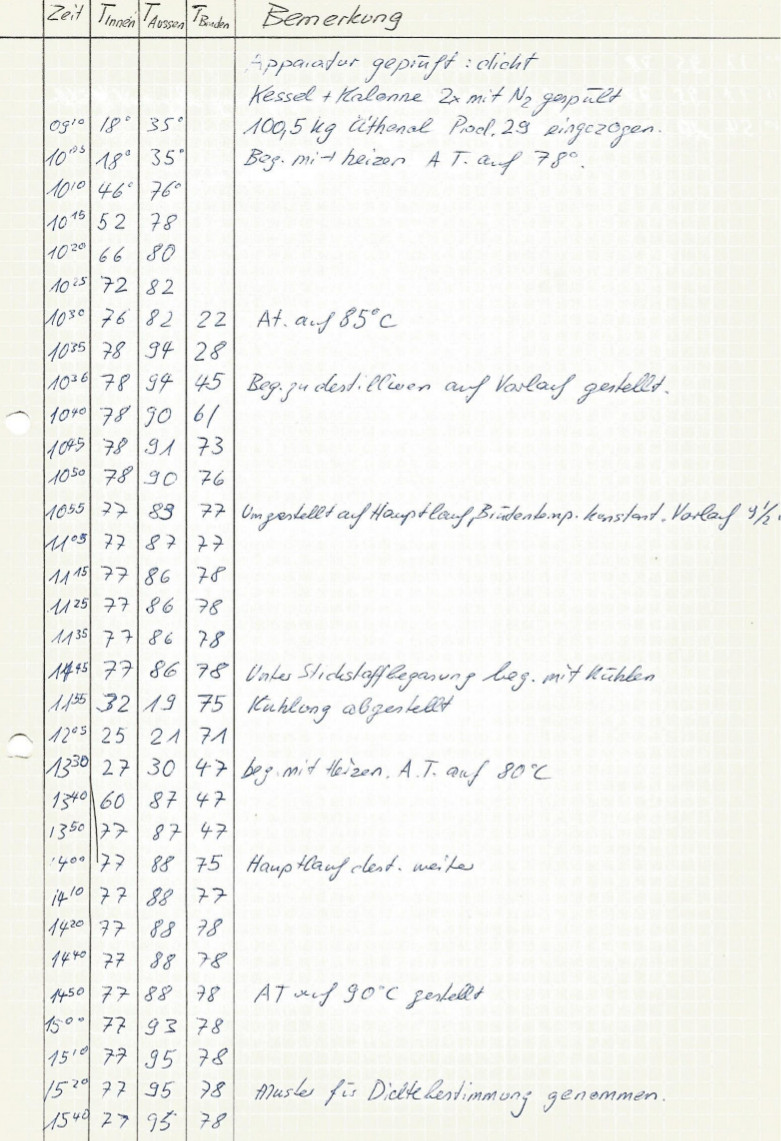 Zeit TInnen TAussen TBrüden Bemerkung
Apparatur geprüft : dicht
Kessel + Kolonne 2x mit N2 gespült
09¹⁰ 18° 35° 100,5 kg Äthanol Prod. 29 eingezogen.
10⁰⁵ 18° 35° Beg. mit heizen A T. auf 78°.
10¹⁰ 46° 76°
10¹⁵ 52 78
10²⁰ 66 80
10²⁵ 72 82
10³⁰ 76 82 22 At. auf 85°C
10³⁵ 78 94 28
10³⁶ 78 94 45 Beg. zu destillieren auf Vorlauf gestellt.
10⁴⁰ 78 90 61
10⁴⁵ 78 91 73
10⁵⁰ 78 90 76
10⁵⁵ 77 89 77 Umgestellt auf Hauptlauf, Brüdentemp. konstant. Vorlauf 9½
11⁰⁵ 77 87 77
11¹⁵ 77 86 78
11²⁵ 77 86 78
11³⁵ 77 86 78
11⁴⁵ 77 86 78 Unter Stickstoffbegasung beg. mit Kühlen
11⁵⁵ 32 19 75 Kühlung abgestellt
12⁰⁵ 25 21 71
13³⁰ 27 30 47 beg. mit Heizen. A.T. auf 80°C
13⁴⁰ 60 87 47
13⁵⁰ 77 87 47
14⁰⁰ 77 88 75 Hauptlauf dest. weiter
14¹⁰ 77 88 77
14²⁰ 77 88 78
14⁴⁰ 77 88 78
14⁵⁰ 77 88 78 AT auf 90°C gestellt
15⁰⁰ 77 93 78
15¹⁰ 77 95 78
15²⁰ 77 95 78 Muster für Dichtebestimmung genommen.
15⁴⁰ 77 95 78